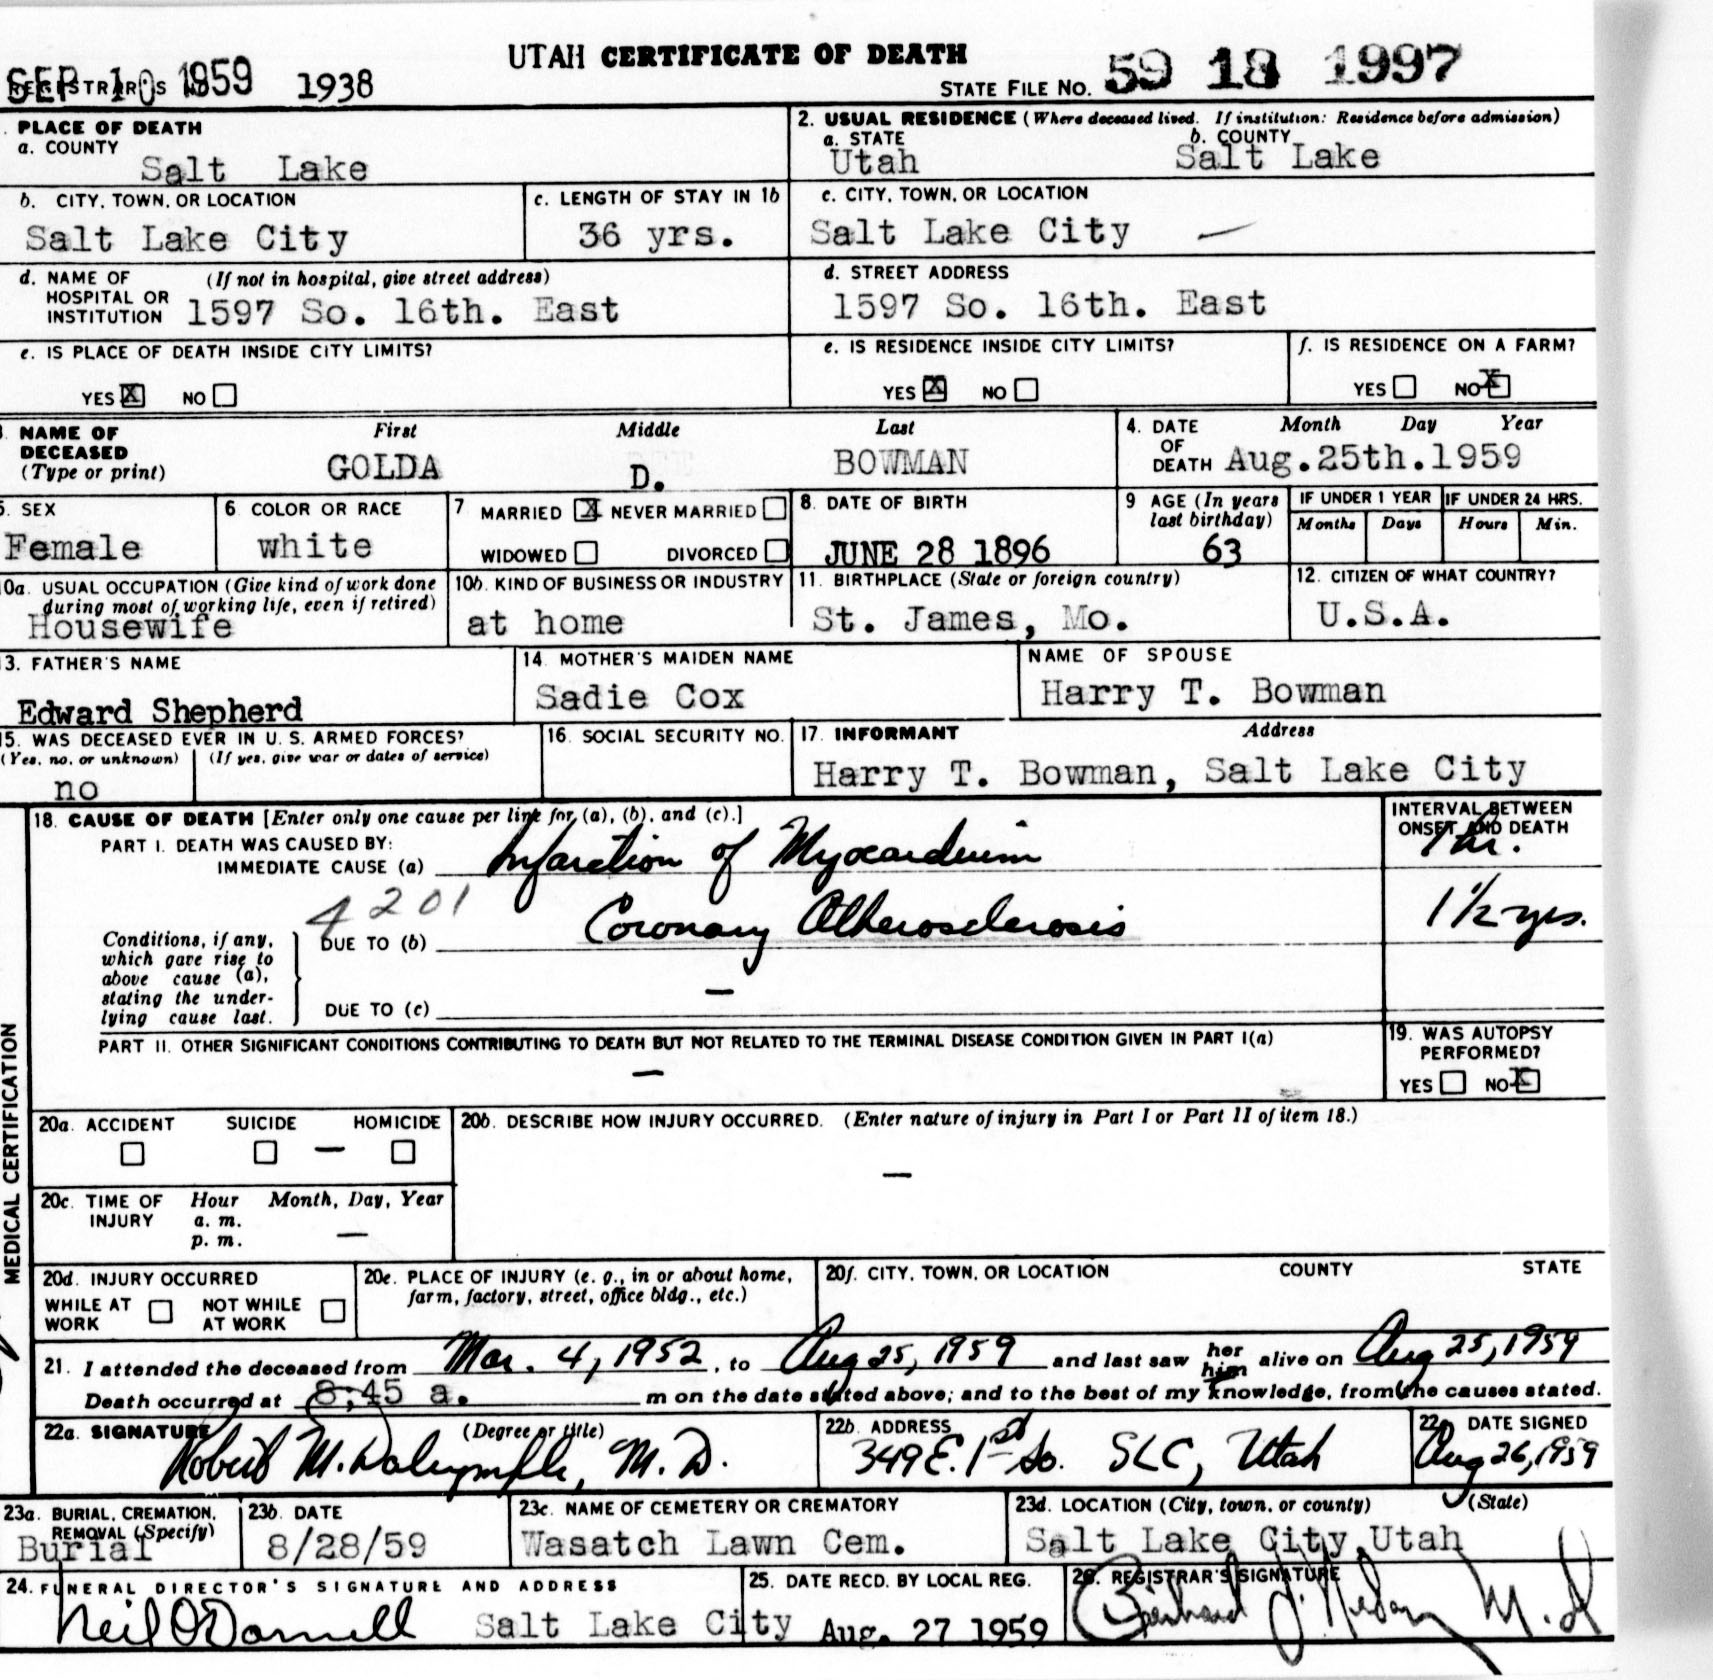 UTAH CERTIFICATE OF DEATH
SEP 10 1959 1938
REGISTRAR'S
STATE FILE NO. 59 18 1997
PLACE OF DEATH
a. COUNTY
Salt Lake
2. USUAL RESIDENCE (Where deceased lived. If institution: Residence before admission)
a. STATE b. COUNTY
Utah Salt Lake
b. CITY, TOWN, OR LOCATION
Salt Lake City
c. LENGTH OF STAY IN 1b
36 yrs.
c. CITY, TOWN, OR LOCATION
Salt Lake City —
d. NAME OF (If not in hospital, give street address)
HOSPITAL OR
INSTITUTION 1597 So. 16th. East
d. STREET ADDRESS
1597 So. 16th. East
e. IS PLACE OF DEATH INSIDE CITY LIMITS?
YES X NO
e. IS RESIDENCE INSIDE CITY LIMITS?
YES X NO
f. IS RESIDENCE ON A FARM?
YES NO X
NAME OF First Middle Last
DECEASED
(Type or print) GOLDA D. BOWMAN
4. DATE Month Day Year
OF
DEATH Aug.25th.1959
5. SEX
Female
6 COLOR OR RACE
white
7 MARRIED X NEVER MARRIED
WIDOWED DIVORCED
8. DATE OF BIRTH
JUNE 28 1896
9 AGE (In years
last birthday)
63
IF UNDER 1 YEAR IF UNDER 24 HRS.
Months Days Hours Min.
10a. USUAL OCCUPATION (Give kind of work done
during most of working life, even if retired)
Housewife
10b. KIND OF BUSINESS OR INDUSTRY
at home
11. BIRTHPLACE (State or foreign country)
St. James, Mo.
12. CITIZEN OF WHAT COUNTRY?
U.S.A.
13. FATHER'S NAME
Edward Shepherd
14. MOTHER'S MAIDEN NAME
Sadie Cox
NAME OF SPOUSE
Harry T. Bowman
15. WAS DECEASED EVER IN U. S. ARMED FORCES?
(Yes, no, or unknown) (If yes, give war or dates of service)
no
16. SOCIAL SECURITY NO.
17. INFORMANT Address
Harry T. Bowman, Salt Lake City
MEDICAL CERTIFICATION
18. CAUSE OF DEATH [Enter only one cause per line for (a), (b), and (c).]
PART I. DEATH WAS CAUSED BY:
IMMEDIATE CAUSE (a) Infarction of Myocardium
INTERVAL BETWEEN
ONSET AND DEATH
1 hr.
4201
Conditions, if any,
which gave rise to
above cause (a),
stating the under-
lying cause last.
DUE TO (b) Coronary Atherosclerosis
1 1/2 yrs.
DUE TO (c) —
PART II. OTHER SIGNIFICANT CONDITIONS CONTRIBUTING TO DEATH BUT NOT RELATED TO THE TERMINAL DISEASE CONDITION GIVEN IN PART I(a)
—
19. WAS AUTOPSY
PERFORMED?
YES NO X
20a. ACCIDENT SUICIDE HOMICIDE
—
20b. DESCRIBE HOW INJURY OCCURRED. (Enter nature of injury in Part I or Part II of item 18.)
—
20c. TIME OF Hour Month, Day, Year
INJURY a. m.
p. m. —
20d. INJURY OCCURRED
WHILE AT NOT WHILE
WORK AT WORK
20e. PLACE OF INJURY (e. g., in or about home,
farm, factory, street, office bldg., etc.)
20f. CITY, TOWN, OR LOCATION COUNTY STATE
21. I attended the deceased from Mar. 4, 1952, to Aug 25, 1959 and last saw her him alive on Aug 25, 1959
Death occurred at 8:45 a. m on the date stated above; and to the best of my knowledge, from the causes stated.
22a. SIGNATURE (Degree or title)
Robert M. Dalrymple, M. D.
22b. ADDRESS
349 E. 1st So. SLC, Utah
22c DATE SIGNED
Aug 26, 1959
23a. BURIAL, CREMATION,
REMOVAL (Specify)
Burial
23b. DATE
8/28/59
23c. NAME OF CEMETERY OR CREMATORY
Wasatch Lawn Cem.
23d. LOCATION (City, town, or county) (State)
Salt Lake City, Utah
24. FUNERAL DIRECTOR'S SIGNATURE AND ADDRESS
Neil O'Donnell Salt Lake City
25. DATE RECD. BY LOCAL REG.
Aug. 27 1959
26. REGISTRAR'S SIGNATURE
M. D